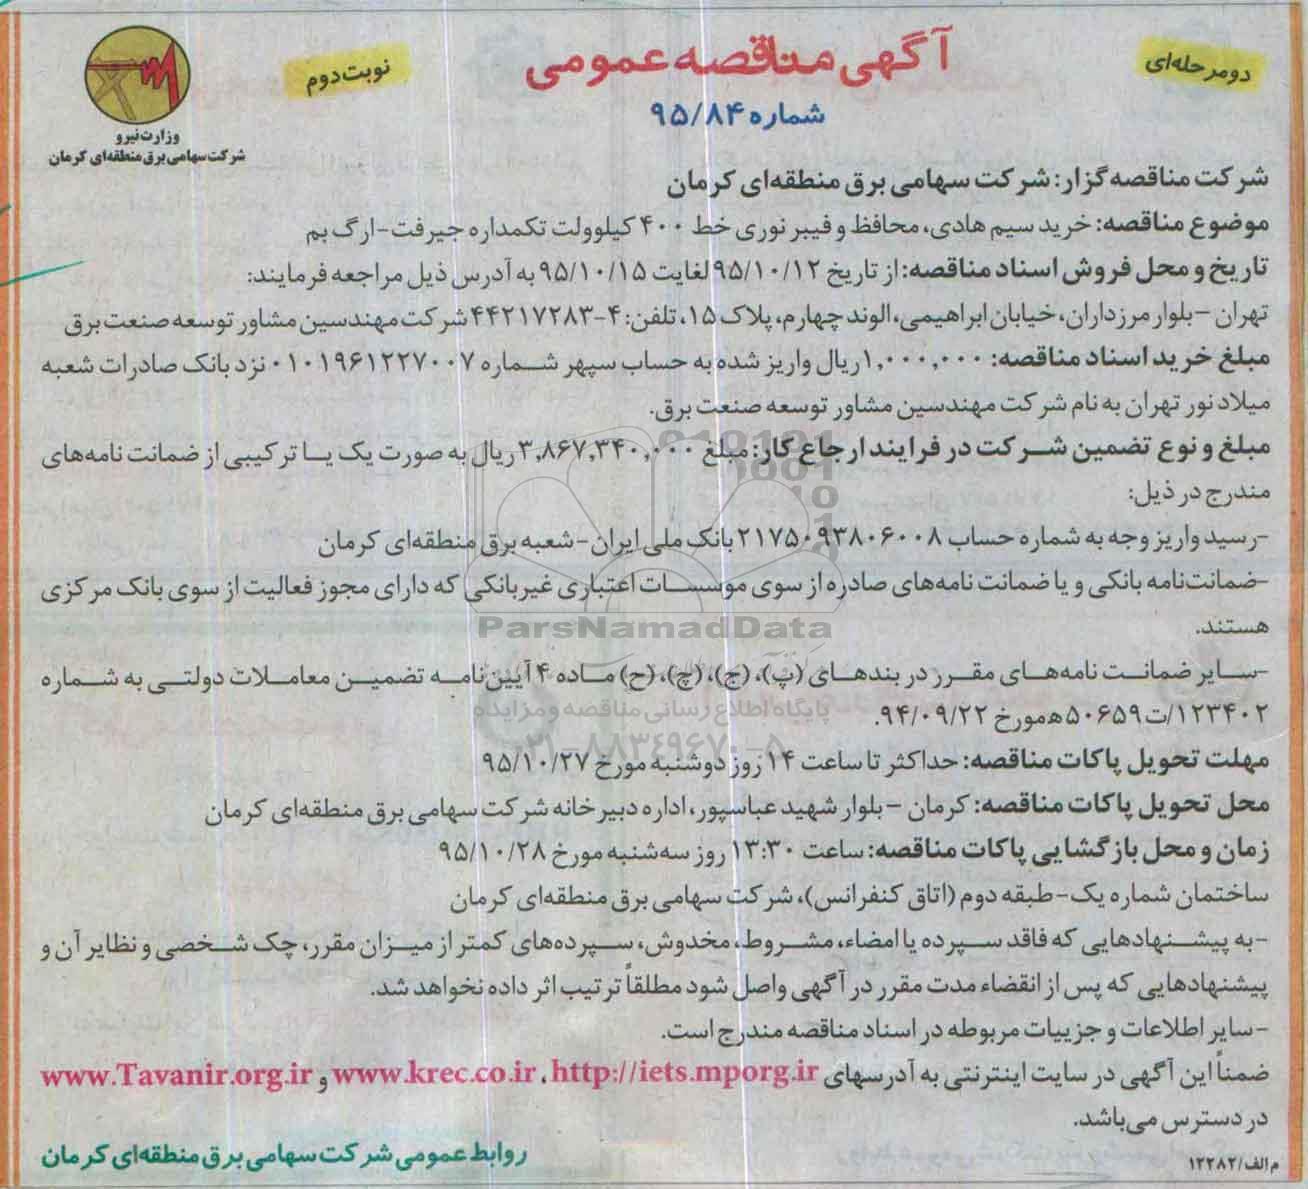 دومرحله‌ای
آگهی مناقصه عمومی
نوبت دوم
شماره ۹۵/۸۴
وزارت نیرو
شرکت سهامی برق منطقه‌ای کرمان
شرکت مناقصه گزار: شرکت سهامی برق منطقه‌ای کرمان
موضوع مناقصه: خرید سیم هادی، محافظ و فیبر نوری خط ۴۰۰ کیلوولت تکمداره جیرفت-ارگ بم
تاریخ و محل فروش اسناد مناقصه: از تاریخ ۹۵/۱۰/۱۲ لغایت ۹۵/۱۰/۱۵ به آدرس ذیل مراجعه فرمایند:
تهران - بلوار مرزداران، خیابان ابراهیمی، الوند چهارم، پلاک ۱۵، تلفن: ۴-۴۴۲۱۷۲۸۳ شرکت مهندسین مشاور توسعه صنعت برق
مبلغ خرید اسناد مناقصه: ۱,۰۰۰,۰۰۰ ریال واریز شده به حساب سپهر شماره ۰۱۰۱۹۶۱۲۲۷۰۰۷ نزد بانک صادرات شعبه
میلاد نور تهران به نام شرکت مهندسین مشاور توسعه صنعت برق.
مبلغ و نوع تضمین شرکت در فرایند ارجاع کار: مبلغ ۳,۸۶۷,۳۴۰,۰۰۰ ریال به صورت یک یا ترکیبی از ضمانت نامه‌های
مندرج در ذیل:
-رسید واریز وجه به شماره حساب ۲۱۷۵۰۹۳۸۰۶۰۰۸ بانک ملی ایران-شعبه برق منطقه‌ای کرمان
-ضمانت‌نامه بانکی و یا ضمانت نامه‌های صادره از سوی موسسات اعتباری غیربانکی که دارای مجوز فعالیت از سوی بانک مرکزی
هستند.
ParsNamadData
-سایر ضمانت نامه‌های مقرر در بندهای (پ)، (ج)، (چ)، (ح) ماده ۴ آیین‌نامه تضمین معاملات دولتی به شماره
۱۲۳۴۰۲/ت۵۰۶۵۹ه مورخ ۹۴/۰۹/۲۲.
پایگاه اطلاع رسانی مناقصه و مزایده
۰۲۱-۸۸۳۴۹۶۷۰-۵
مهلت تحویل پاکات مناقصه: حداکثر تا ساعت ۱۴ روز دوشنبه مورخ ۹۵/۱۰/۲۷
محل تحویل پاکات مناقصه: کرمان - بلوار شهید عباسپور، اداره دبیرخانه شرکت سهامی برق منطقه‌ای کرمان
زمان و محل بازگشایی پاکات مناقصه: ساعت ۱۳:۳۰ روز سه‌شنبه مورخ ۹۵/۱۰/۲۸
ساختمان شماره یک-طبقه دوم (اتاق کنفرانس)، شرکت سهامی برق منطقه‌ای کرمان
-به پیشنهادهایی که فاقد سپرده یا امضاء، مشروط، مخدوش، سپرده‌های کمتر از میزان مقرر، چک شخصی و نظایر آن و
پیشنهادهایی که پس از انقضاء مدت مقرر در آگهی واصل شود مطلقاً ترتیب اثر داده نخواهد شد.
-سایر اطلاعات و جزییات مربوطه در اسناد مناقصه مندرج است.
ضمناً این آگهی در سایت اینترنتی به آدرسهای http://iets.mporg.ir، www.krec.co.ir و www.Tavanir.org.ir
در دسترس می‌باشد.
روابط عمومی شرکت سهامی برق منطقه‌ای کرمان
م الف/۱۲۲۸۲